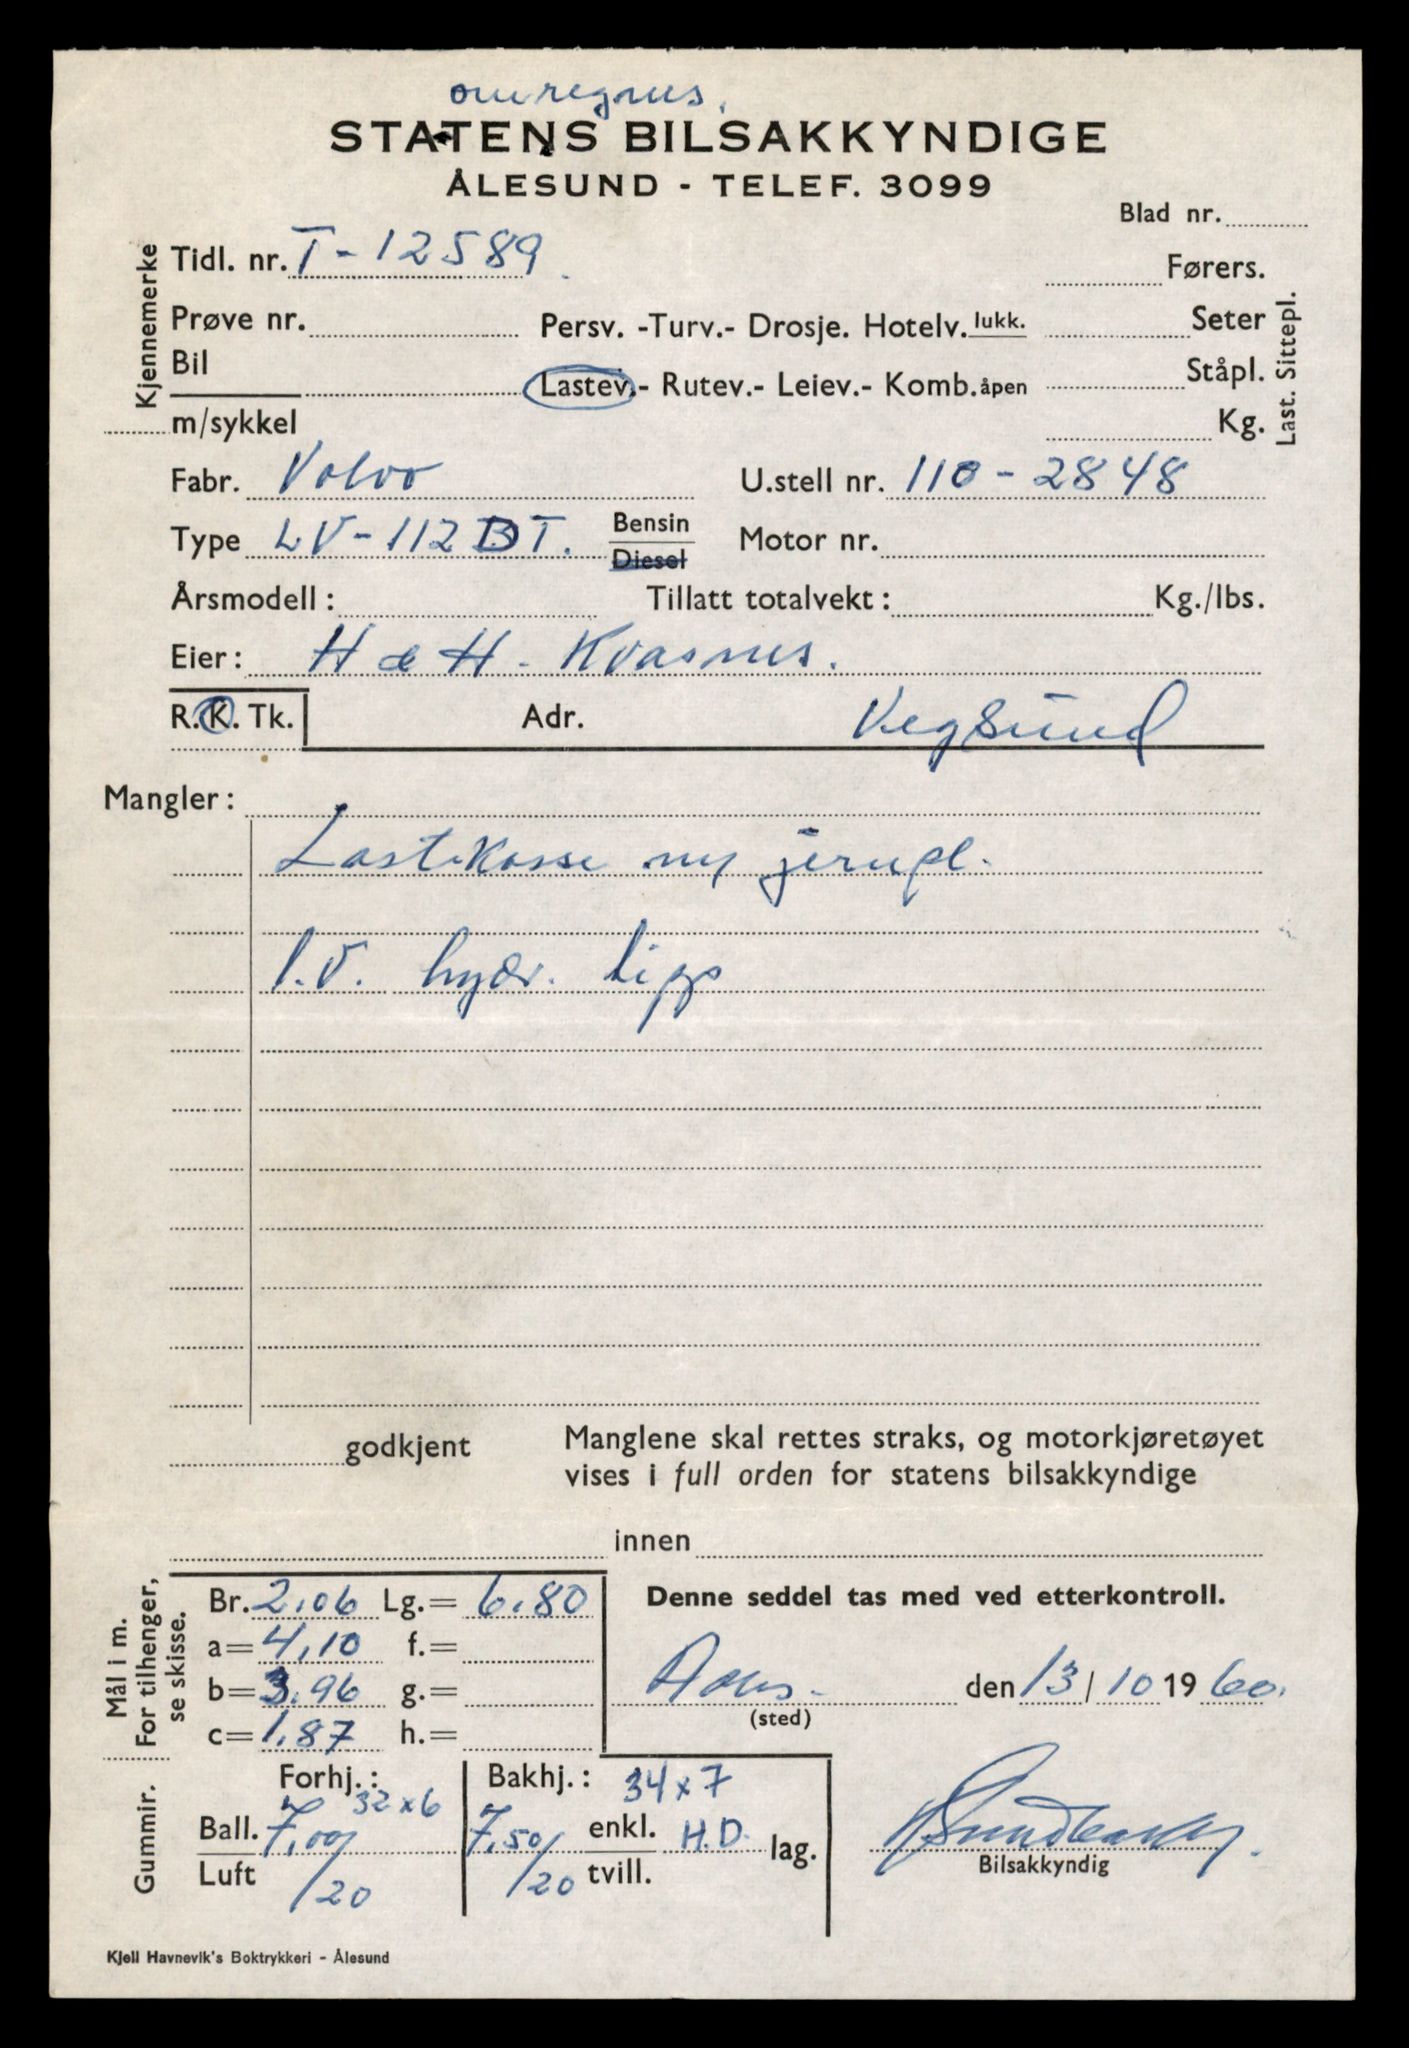 omregnes.
STATENS BILSAKKYNDIGE
ÅLESUND - TELEF. 3099
Blad nr.
Kjennemerke
Tidl. nr. T-12589.
Førers.
Prøve nr. Persv. -Turv.- Drosje. Hotelv. lukk. Seter
Bil
Lastev.- Rutev.- Leiev.- Komb. åpen Ståpl.
m/sykkel Kg.
Last. Sittepl.
Fabr. Volvo U.stell nr. 110-2848
Type LV-112 DT. Bensin Diesel Motor nr.
Årsmodell: Tillatt totalvekt: Kg./lbs.
Eier: H & H. Kvasnes.
R. K. Tk. Adr. Vegsund
Mangler:
Lastekasse my
1.V. hydr. tipp
godkjent Manglene skal rettes straks, og motorkjøretøyet
vises i full orden for statens bilsakkyndige
innen
Mål i m.
For tilhenger,
se skisse.
Br. 2.06 Lg.= 6.80
a= 4,10 f.=
b= 3.96 g.=
c= 1.87 h.=
Denne seddel tas med ved etterkontroll.
den 13/10 1960.
(sted)
Gummir.
Forhj.: 32x6 Bakhj.: 34x7
Ball. 7,00/ 7,50/ enkl. H.D. lag.
Luft /20 /20 tvill.
Bilsakkyndig
Kjell Havnevik's Boktrykkeri - Ålesund